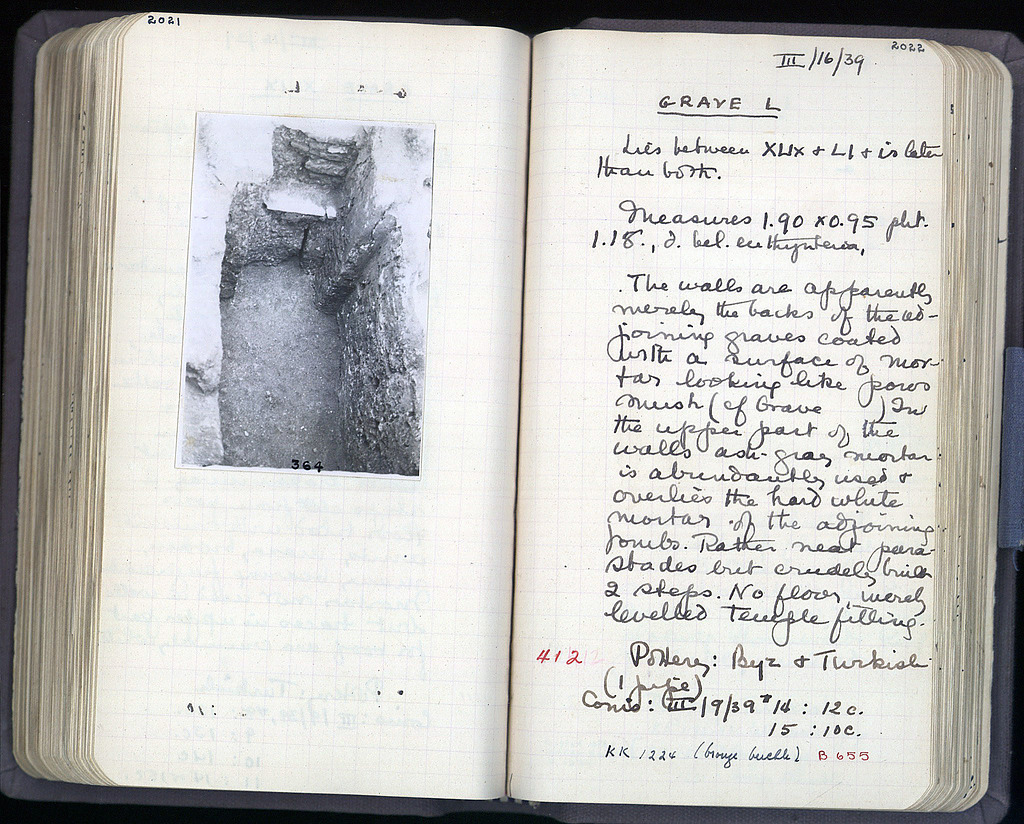 2021
364
2022
III/16/39
GRAVE L
Lies between XLIX + LI + is later
than both.
Measures 1.90 x 0.95 pht.
1.18., d. bel. euthynteria,
The walls are apparently
merely the backs of the ad-
joining graves coated
with a surface of mor-
tar looking like poros
mush (cf Grave ) In
the upper part of the
walls ash-gray mortar
is abundantly used +
overlies the hard white
mortar of the adjoining
tombs. Rather neat para-
stades but crudely built
2 steps. No floor, merely
levelled Temple filling.
412 Pottery: Byz + Turkish
(1 pipe)
Coins: III/9/39 #14 : 12c.
15 : 10c.
KK 1224 (bronze buckle) B 655